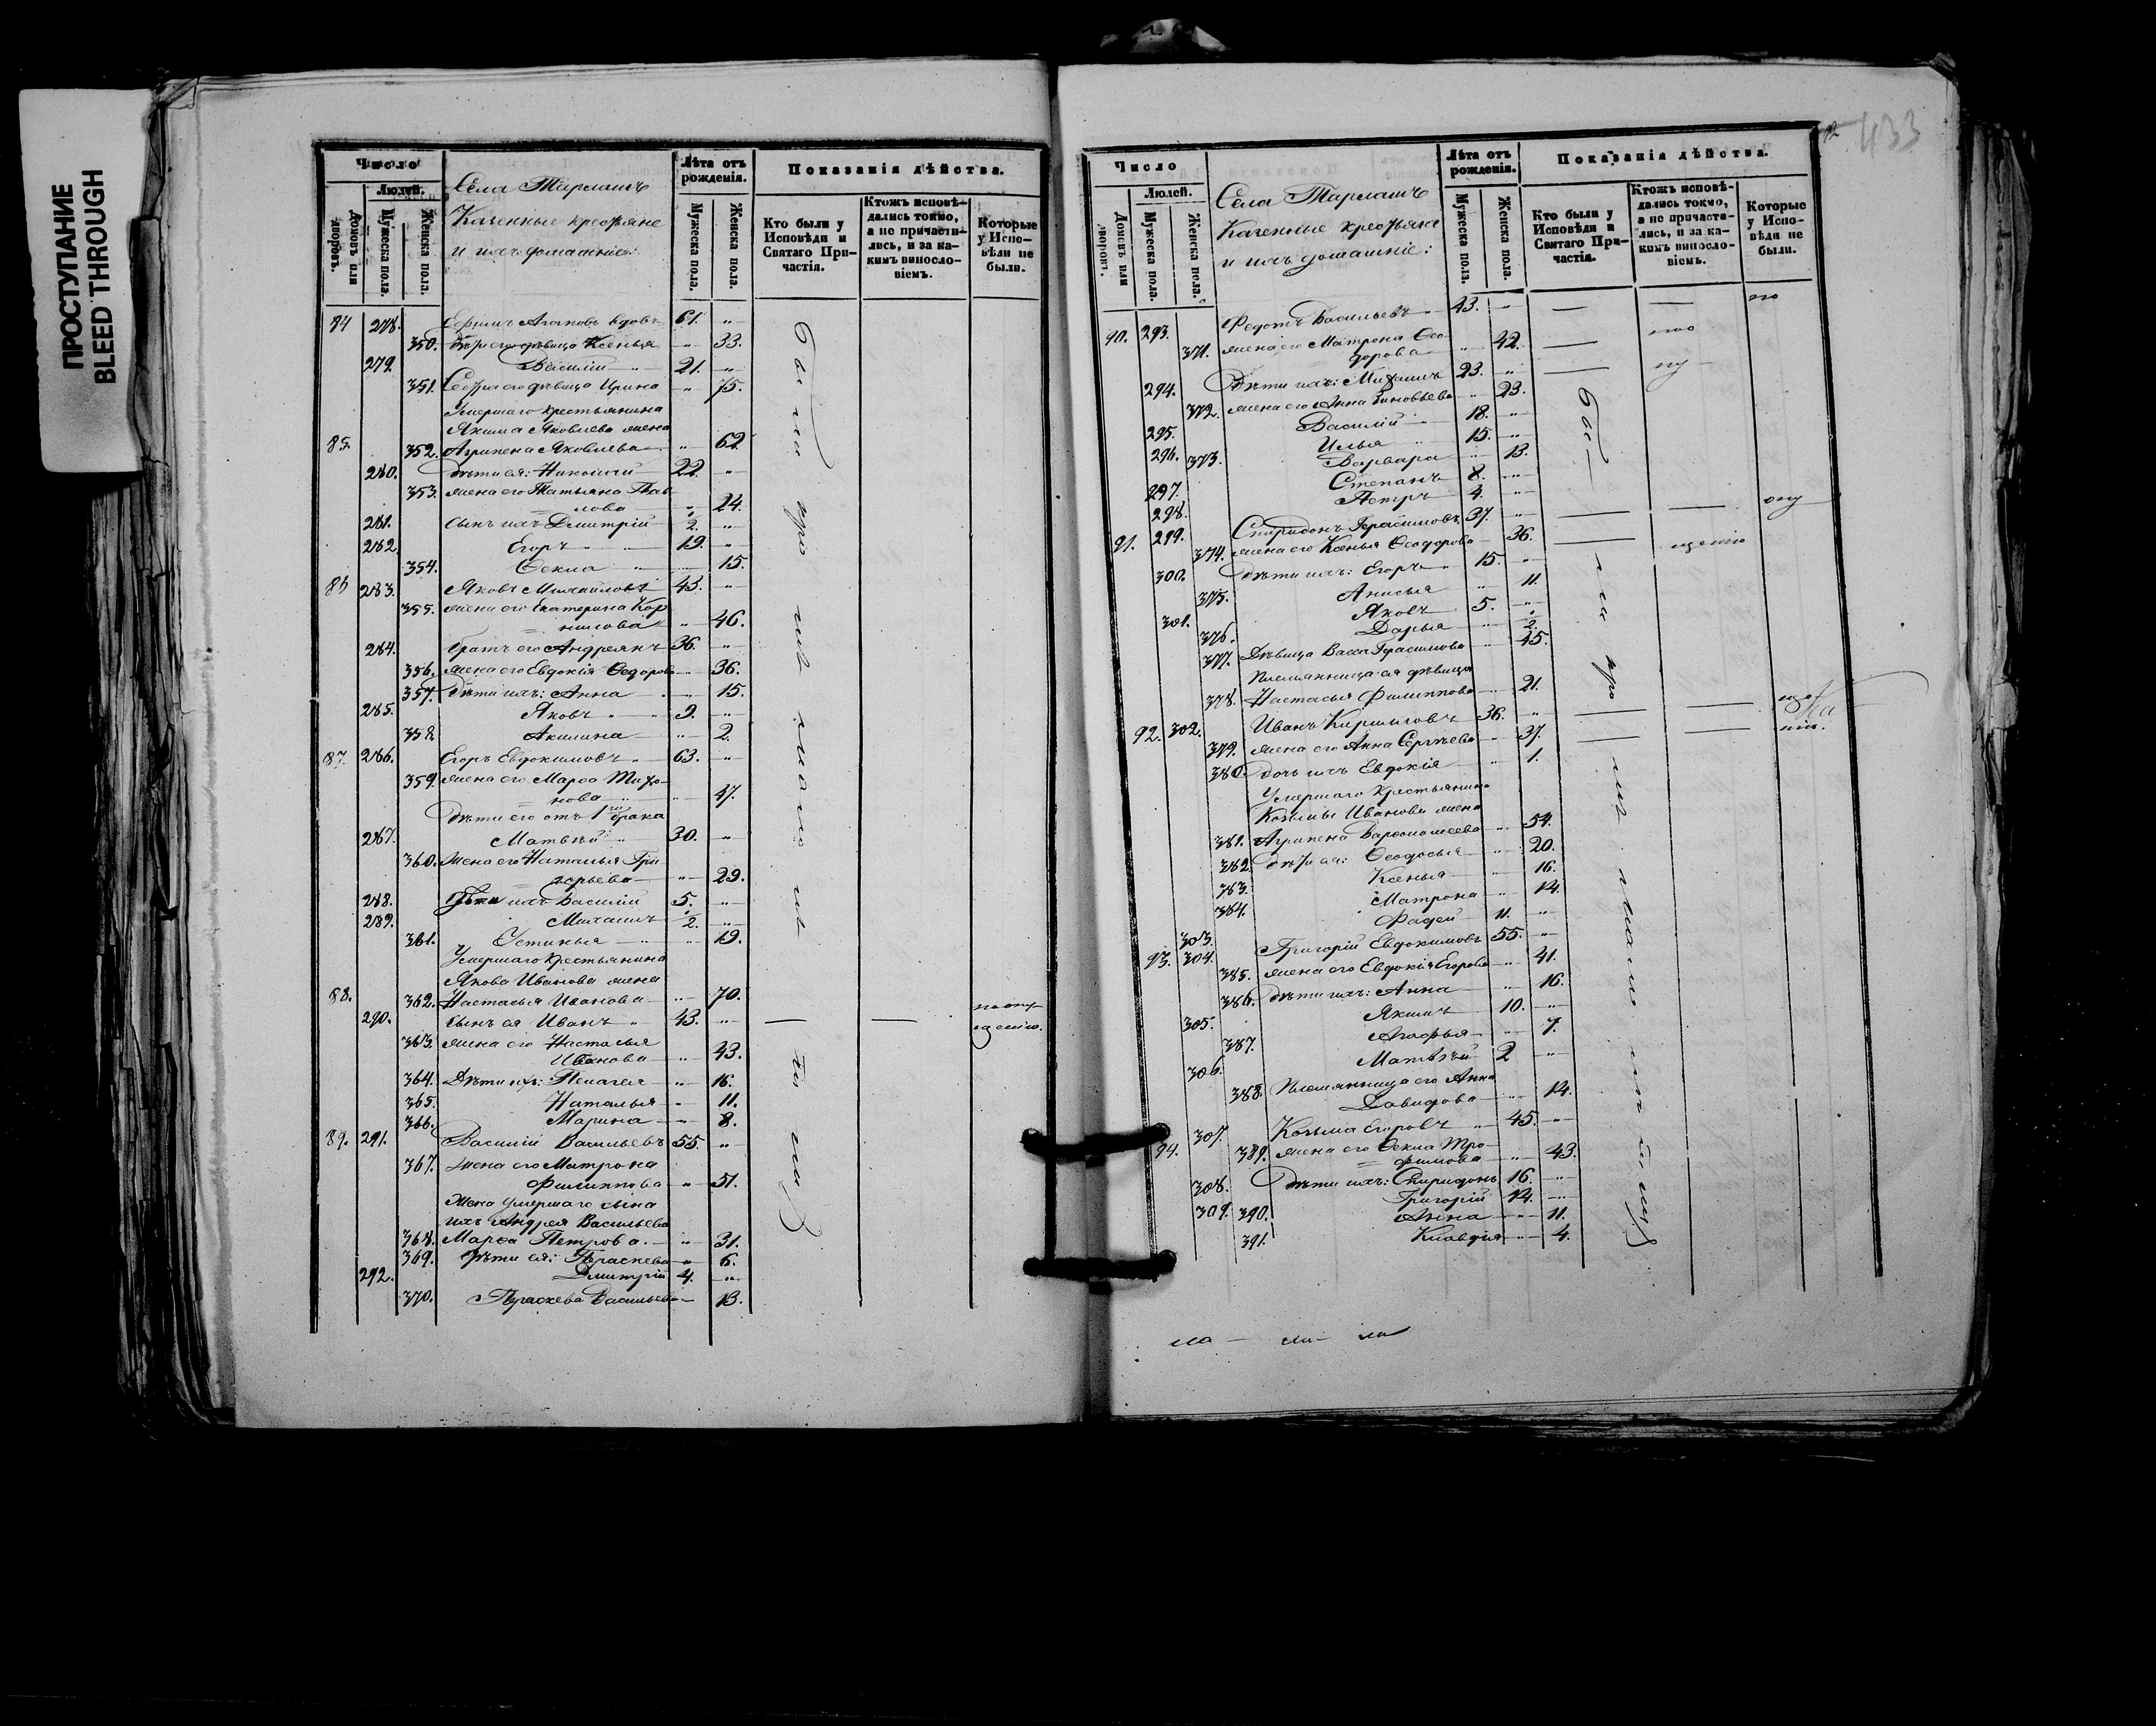 ПРОСТУПАНИЕ
BLEED THROUGH
Число
Людей.
Домовъ или дворовъ.
Мужеска пола.
Женска пола.
Села Тарлашъ
Казенные крестьяне
и ихъ домашніе:
Лѣта отъ рожденія.
Мужеска пола.
Женска пола.
Показанія дѣйства.
Кто были у Исповѣди и Святаго Причастія.
Ктожъ исповѣдались токмо, а не причастились, и за какимъ винословіемъ.
Которые у Исповѣди не были.
84 278. Ефимъ Агаповъ вдовъ 61. "
350. Дѣти его: дѣвица Ксенья " 33.
279. Василій " 21. "
351. Сестра его дѣвица Ирина " 75.
Умершаго крестьянина
Якима Яковлева жена
85. 352. Агрипена Яковлева " 62
280. Дѣти ея: Николай 22. "
353. жена его Татьяна Пав
лова " 24.
281. Сынъ ихъ Дмитрій 2. "
282 Егоръ " 19. "
354. Ѳекла " 15.
86 283. Яковъ Михайловъ 43. "
355. жена его Екатерина Кор
нилова " 46.
284. Братъ его Андреянъ 36. "
356. жена его Евдокія Ѳедорова " 36.
357. Дѣти ихъ: Анна " 15.
285. Яковъ " 9. "
358. Акилина " 2.
87. 286. Егоръ Евдокимовъ " 63. "
359. жена его Марѳа Тихо-
нова " 47.
Дѣти его отъ 1го брака
287. Матвѣй " 30. "
360. жена его Наталья Гри
горьева " 29.
288. Дѣти ихъ Василій 5. "
289. Михаилъ 2. "
361. Устинья " 19.
Умершаго крестьянина
Якова Иванова жена
88. 362. Настасья Иванова " 70.
290. Сынъ ея Иванъ " 43. " — — по опу-
щенію.
363. жена его Настасья
Иванова " 43.
364. Дѣти ихъ: Пелагея " 16.
365. Наталья " 11.
366. Марина " 8.
89. 291. Василій Васильевъ 55. "
367. жена его Матрона
Филиппова " 51.
Жена умершаго сына
ихъ Андрея Васильева
368. Марѳа Петрова. " 31.
369. Дѣти ея: Параскева " 6.
292. Дмитрій 4. "
370. Параскева Васильева 13.
433
Число
Людей.
Домовъ или дворовъ.
Мужеска пола.
Женска пола.
Села Тарлашъ
Казенные крестьяне
и ихъ домашніе:
Лѣта отъ рожденія.
Мужеска пола.
Женска пола.
Показанія дѣйства.
Кто были у Исповѣди и Святаго Причастія.
Ктожъ исповѣдались токмо, а не причастились, и за какимъ винословіемъ.
Которые у Исповѣди не были.
90. 293. Федотъ Васильевъ 43. " — — по
371. жена его Матрона Ѳео
дорова " 42. —
294. Дѣти ихъ: Михаилъ 23. " —
372. жена его Анна Зиновьева " 23.
295. Василій 18. "
296. Илья 15. "
373. Варвара " 13.
297. Степанъ 8. "
298. Петръ 4. "
91. 299. Спиридонъ Герасимовъ 37. " — — опу
374. жена его Ксенья Ѳеодорова " 36. — щенію
300. Дѣти ихъ: Егоръ " 15. "
375. Анисья " 11.
301. Яковъ 5. "
376. Дарья " 2.
377. Дѣвица Васса Герасимова " 45.
Племянница ея дѣвица
378. Настасья Филиппова " 21.
92. 302. Иванъ Кириловъ 36. " — —
379. жена его Анна Сергѣева " 37. — —
380. дочь ихъ Евдокія " 1.
Умершаго крестьянина
Козьмы Иванова жена
381. Агрипена Варѳоломеева " 54.
382. дѣти ея: Ѳеодосья " 20.
383. Ксенья " 16.
384. Матрона " 14.
303. Фадей 11. "
93. 304. Григорій Евдокимовъ 55. "
385. жена его Евдокія Егорова " 41.
386. дѣти ихъ: Анна " 16.
305. Якимъ 10. "
387. Агафья " 7.
306. Матвѣй 2 "
388. Племянница его Анна
Давидова " 14.
94. 307. Козьма Егоровъ " 45. "
389. жена его Ѳекла Тро-
фимова " 43.
308. Дѣти ихъ: Спиридонъ 16. "
309. Григорій 14. "
390. Анна " 11.
391. Клавдія " 4.